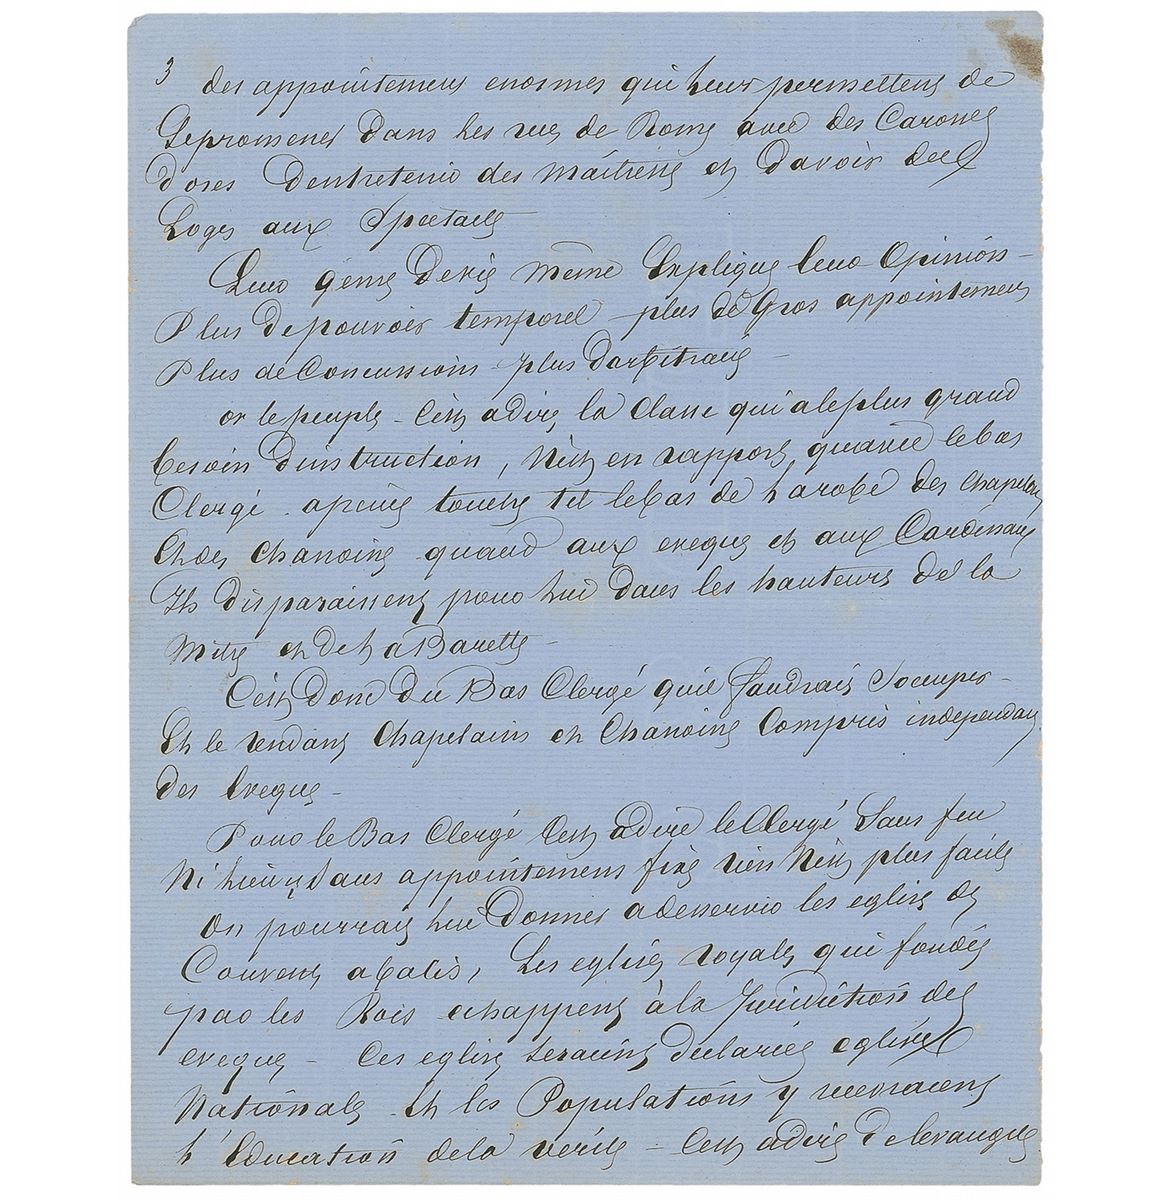 3 des appointements enormes qui leur permettent de
Se promener dans les rues de Rome avec des Carosses
dorés D'entretenir des maitresses et D'avoir des
Loges aux Spectacles
Leur Devise même Explique leur Opinion -
Plus De pouvoir temporel - plus de Gros appointements
Plus de Concussions - plus D'arbitraire -
or le peuple - C'est a dire, la Classe qui a le plus grand
besoin D'instruction, N'est en rapport qu'avec le bas
Clergé - a peine touche t il le bas de la robe des Chapelains
Et des Chanoines quand aux eveques et aux Cardinaux
Ils disparaissent pour lui dans les hauteurs de la
Mitre et De la Barette -
C'est Donc du Bas Clergé qu'il Faudrait S'occuper -
Et le rendant Chapelains et Chanoines Compris independant
des Eveques -
Pour le Bas Clergé C'est a dire le Clergé Sans feu
Ni lieu et Sans appointements fixes rien N'est plus facile
On pourrait lui Donner a desservir les eglises des
Couvents abolis, Les eglises royales qui fondées
par les Rois echappent à la Juridiction des
eveques - Ces eglises seraient declarées eglises
Nationales - Et les Populations y recevraient
L'Education de la verité - C'est a dire De l'evangile